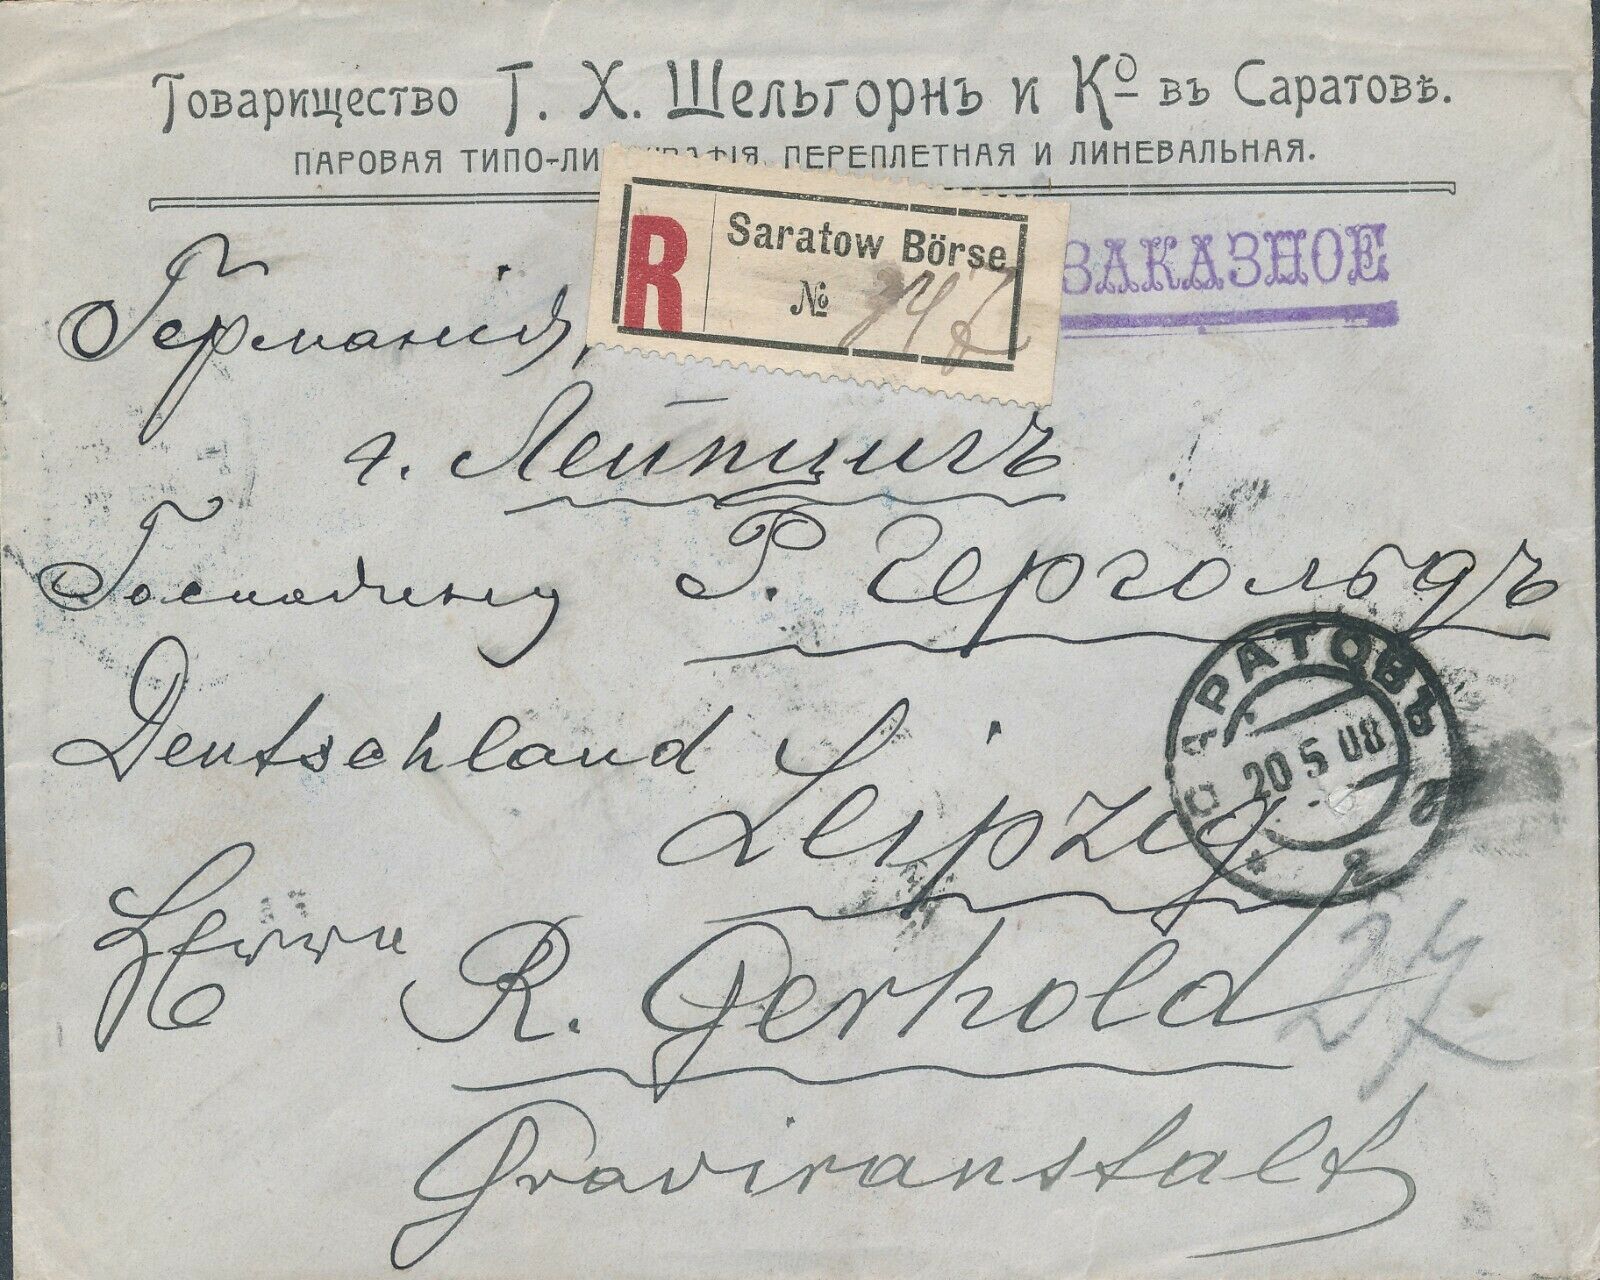 Товарищество Г. Х. Шельгорнъ и Ко въ Саратовѣ.
ПАРОВАЯ ТИПО-ЛИ АФІЯ, ПЕРЕПЛЕТНАЯ И ЛИНЕВАЛЬНАЯ.
R Saratow Börse
№
ЗАКАЗНОЕ
Германія,
г. Лейпцигъ
Господину Р. Герголь­дъ
САРАТОВЪ
20 5 08
Deutschland
Leipzig
Herrn R. Gerhold
Graviranstalt